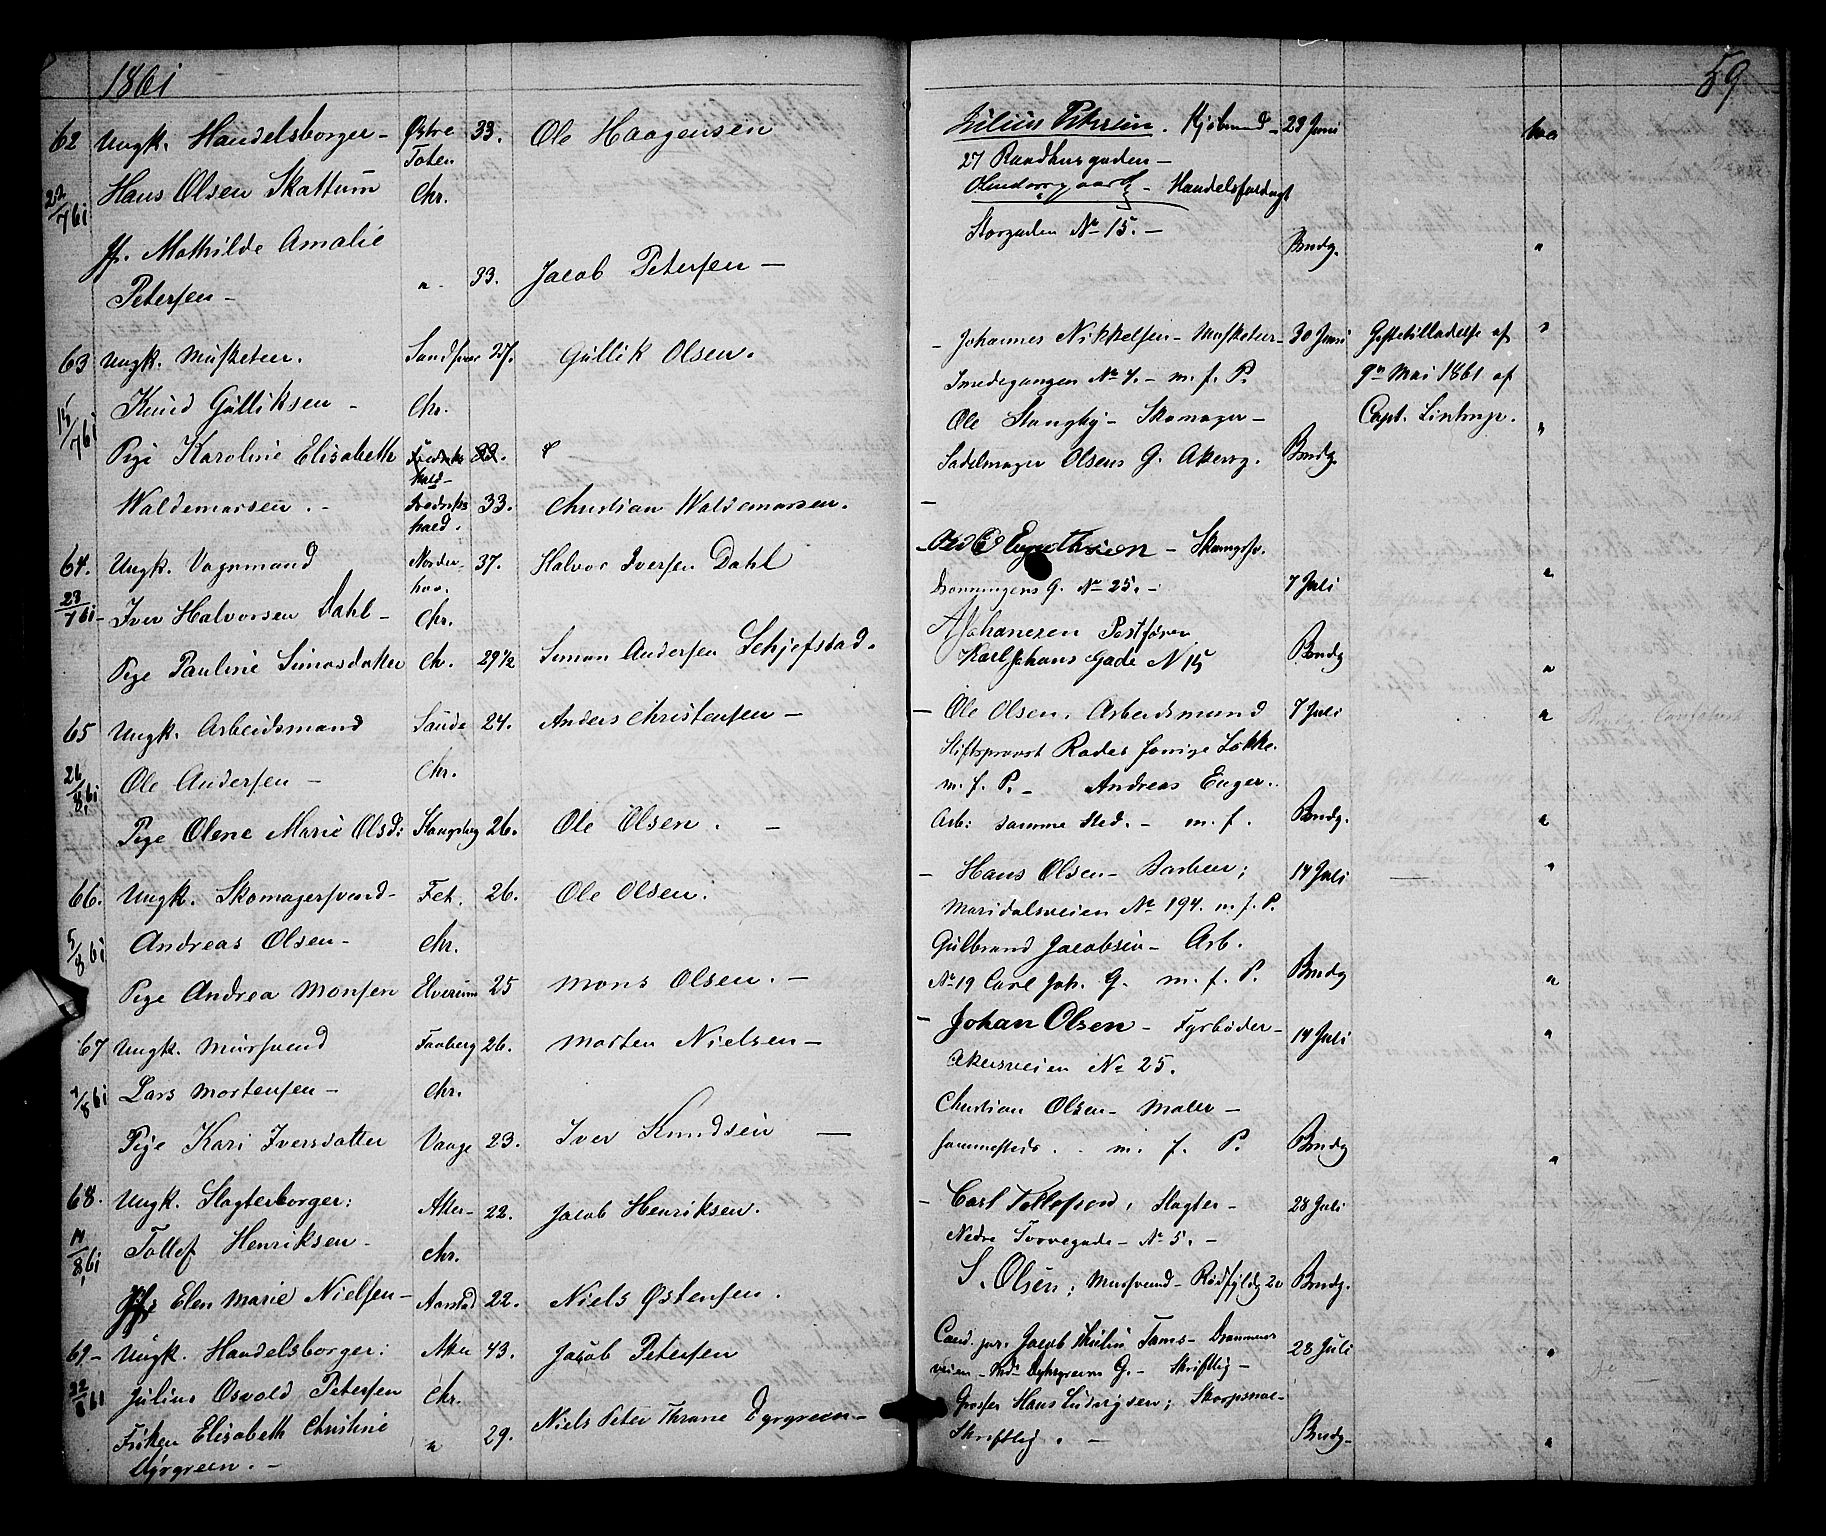 1861
59
62 Ungk. Handelsborger - Østre Toten 33. Ole Haagensen
22/7 61 Hans Olsen Skattum Chr.
Jf. Mathilde Amalie
Petersen - " 33. Jacob Petersen -
Julius Petersen. Kjøbmand - 29 Juni
27 Raadhusgaden -
Handelsfuldmgt
Storgaden No 15. - Brudg.
63 Ungk. Musketeer. Sandsvær 27. Gullik Olsen.
15/7 61 Knud Gulliksen - Chr.
Pige Karoline Elisabeth
Waldemarsen. - Fredrikshald. 33. Christian Waldemarsen.
- Johannes Nikkelsen - Musketeer - 30 Juni Giftetilladelse af
Smedegangen No 7. - m. f. P. 9de Mai 1861 af
Ole Stangby - Skomager - Capt. Lintrup.
Sadelmager Olsens G. Akersg. Brudg.
64. Ungk. Vognmand Norderhov. 37. Halvor Iversen Dahl
23/7 61 - Iver Halvorsen Dahl - Chr.
Pige Pauline Simosdatter Chr. 29 1/2 Simon Andersen Schjefstad.
Dronningens G. No 25. - 7 Juli
A Johanesen Postfører
Karl Johans Gade N 15 Brudg
65 Ungk. Arbeidsmand Saude 24. Anders Christensen -
26/8 61 Ole Andersen - Chr.
Pige Olene Marie Olsd: 26. Ole Olsen. -
- Ole Olsen. Arbeidsmand 7 Juli
Stiftsprovst Rodes forrige Løkke.
m. f. P. - Andreas Enger.
Arb: samme Sted. - m. f. Brudg.
66. Ungk. Skomagersvend - Fet. 26. Ole Olsen.
5/8 61 Andreas Olsen - Chr.
Pige Andrea Monsen Elverum 25 Mons Olsen. -
- Hans Olsen - 14 Juli
Maridalsveien No 194. m. f. P.
Gulbrand Jacobsen - Arb.
No 19 Carl Joh. G. m. f. P. Brudg
67 Ungk. Mursvend Faaberg 26. Morten Nielsen -
/8 61 Lars Mortensen - Chr.
Pige Kari Iversdatter Vaage 23. Iver Knudsen -
- Johan Olsen - Fyrbøder - 14 Juli
Akersveien No 25.
Christian Olsen - Maler -
sammesteds. m. f. P. Brudg
68. Ungk. Slagterborger: Aker - 22. Jacob Henriksen.
14/8 61 Tollef Henriksen - Chr.
Jf. Elen Marie Nielsen - 22. Niels Østensen.
- Carl Tollefsen, Slagter - 28 Juli
Nedre Torvegade - No 5. -
S. Olsen; Mursvend - 20 Brudg.
69 - Ungk. Handelsborger: Aker 43. Jacob Petersen
22/8 61 Julius Osvald Petersen Chr.
Frøken Elisabeth Christine " 29. Niels Peter Thrane Dyrgreen -
Dyrgreen. -
Cand. jur. Jacob Thulin Tams - Drammensveien - 28 Juli
Dyhrgreens G. - Skriftlig -
Grosser Hans Ludvigsen;
Skriftlig. - Brudg -